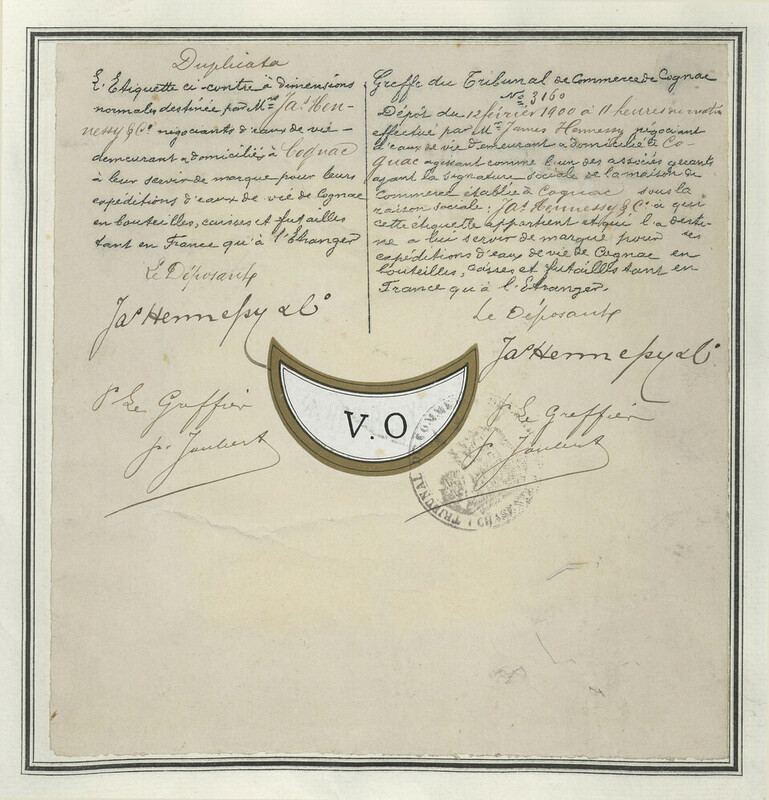 Duplicata
L'Etiquette ci-contre à dimensions
normales destinée par Mrs Jas Hen-
nessy & Co négociants d'eaux de vie -
demeurant & domiciliés à Cognac
à leur servir de marque pour leurs
expéditions d'eaux de vie de Cognac
en bouteilles, caisses et futailles
tant en France qu'à l'Etranger
Le Déposant
Jas Hennessy & Co
Pr Le Greffier
pr Joubert
Greffe du Tribunal de Commerce de Cognac
No 3160
Dépôt du 12 février 1900 à 11 heures du matin
effectué par Mr James Hennessy négociant
d'eaux de vie demeurant & domicilié à Co-
gnac agissant comme l'un des associés gérants
ayant la signature sociale de la maison de
Commerce établie à Cognac sous la
raison sociale: Jas Hennessy & Co à qui
cette étiquette appartient et qui l'a desti-
née à lui servir de marque pour ses
expéditions d'eaux de vie de Cognac en
bouteilles, caisses et futailles tant en
France qu'à l'Etranger.
Le Déposant
Jas Hennessy & Co
Pr Le Greffier
pr Joubert
V.O
TRIBUNAL DE COMME
CHARENTE